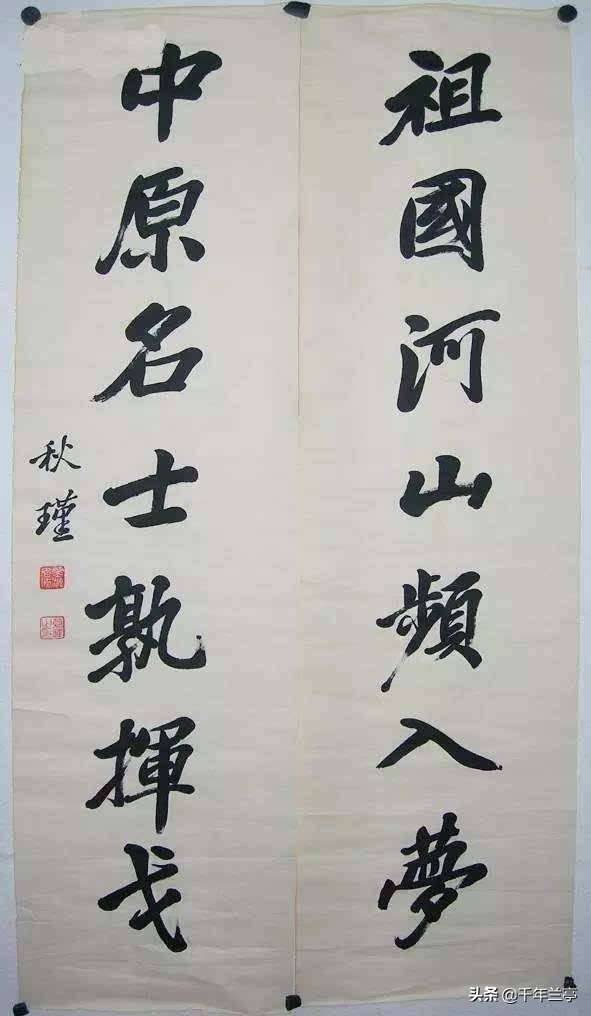 祖國河山頻入夢
中原名士孰揮戈
秋瑾
头条 @千年兰亭